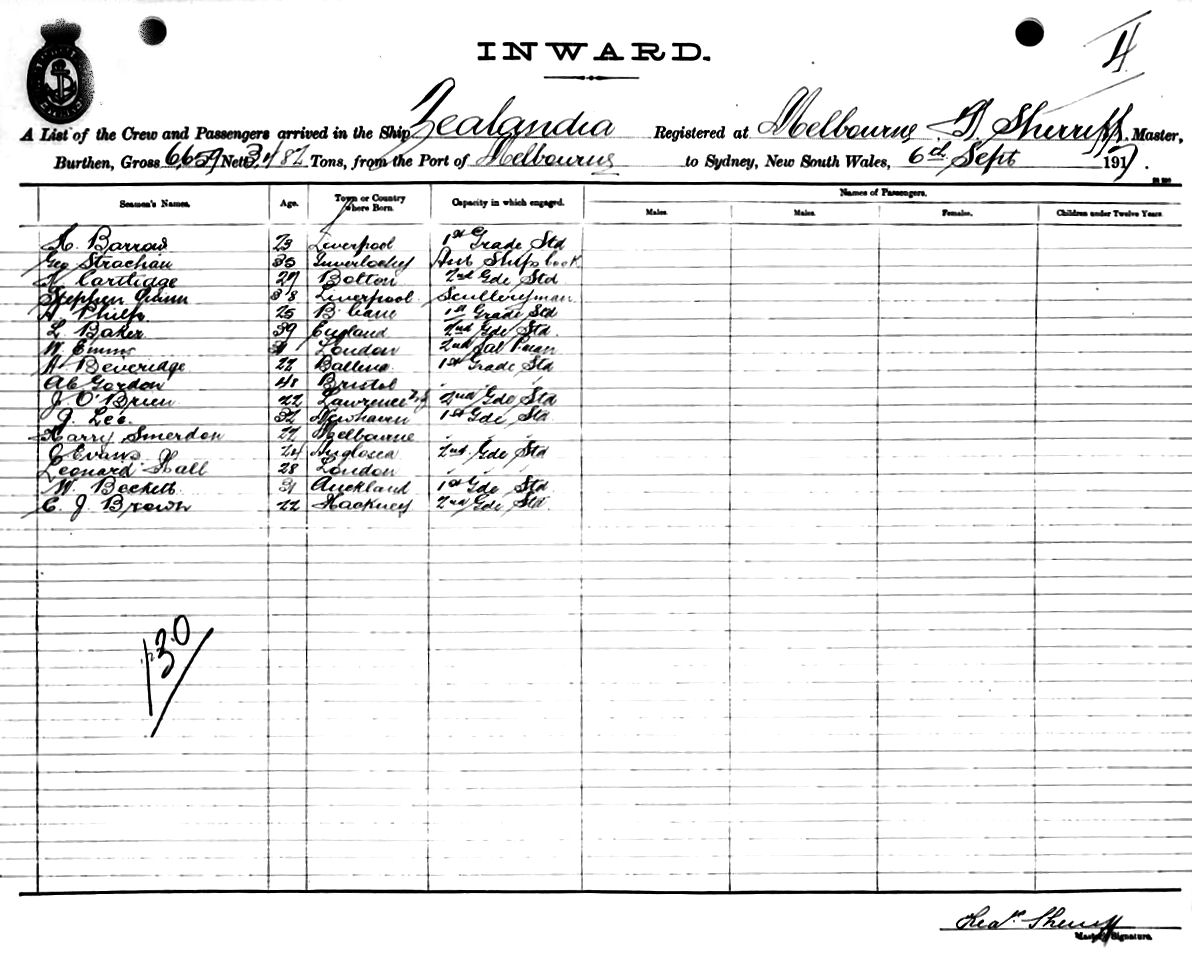 INWARD.
4
A List of the Crew and Passengers arrived in the Ship Zealandia Registered at Melbourne, T. Sherriff. Master,
Burthen, Gross 6659 Nett 3482 Tons, from the Port of Melbourne to Sydney, New South Wales, 6th Sept 1917.
Seamen's Names. Age. Town or Country where Born. Capacity in which engaged. Names of Passengers.
Males. Males. Females. Children under Twelve Years.
Barrow 23 Liverpool 1st Grade Std
Geo Strachan 35 Inverlochy Ships Cook
Cartlidge 27 Bolton 2nd Gde Std
Stephen Quinn 38 Liverpool Sculleryman
Philp 25 B'bane 1st Grade Std
L. Baker 39 England 2nd Gde Std
W. Emms London 2nd
A. Beveridge 22 Ballina 1st Grade Std
Gordon 48 Bristol " "
J. O'Brien 22 Lawrence 2nd Gde Std
J. Lee. 32 Newhaven 1st Gde Std
Harry Smerdon 22 Melbourne " " "
Evans 24 Anglesea 2nd Gde Std
Leonard Hall 28 London " " "
W. Beckett 31 Auckland 1st Gde Std
C. J. Brown 22 Hackney 2nd Gde Std
130
Sherriff
Master's Signature.